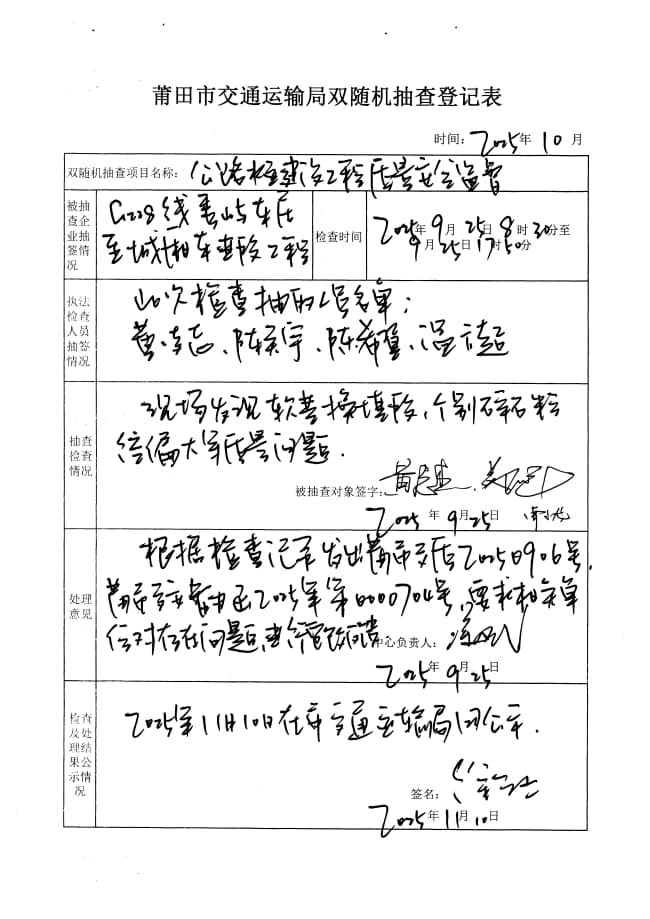 莆田市交通运输局双随机抽查登记表
时间：2025年10月
双随机抽查项目名称：公路在建设工程质量安全监督
被抽查企业抽签情况
G228线秀屿东庄
至城厢东进段工程
检查时间
2025年9月25日8时30分至
9月25日17时50分
执法检查人员抽签情况
此次检查抽取人员名单：
黄志、陈宇、陈希、温超
抽查检查情况
现场发现软基换填段，个别碎石粒
径偏大等质量问题.
被抽查对象签字：
2025年9月25日
处理意见
根据检查记录发出莆市交质20250906号,
莆市交督函2025年第0000704号,要求相关单
位对存在问题进行整改回复.
中心负责人：
2025年9月25日
检查及处理结果公示情况
2025年11月10日在市交通运输局网公示.
签名：
2025年11月10日